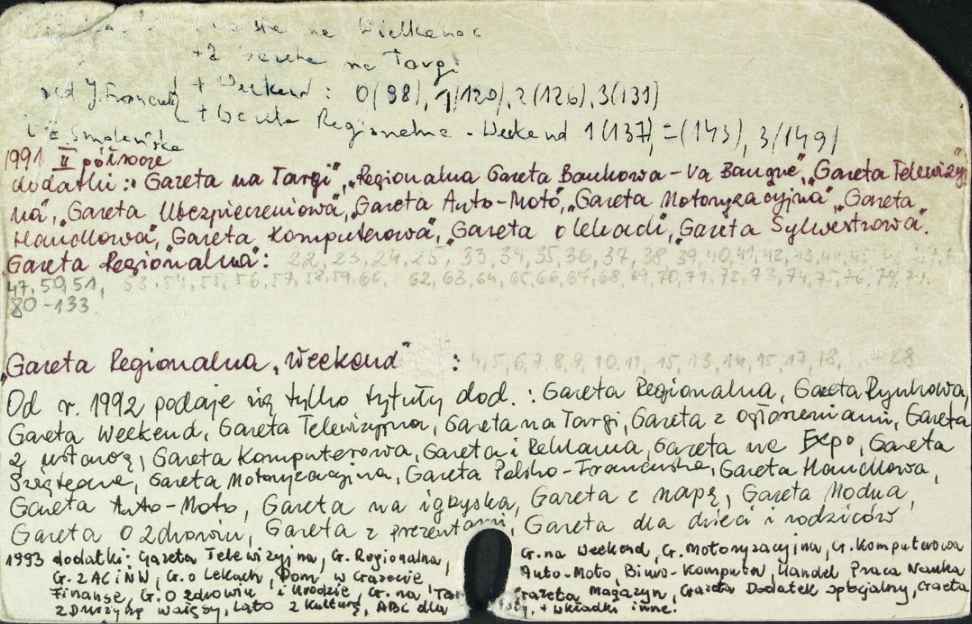 na Wielkanoc
+2 na Targi
+ Weekend : 0(98), 1(120), 2(126), 3(131)
Regionalna - Weekend 1(137), =(143), 3/149)
1991 II półrocze
dodatki: "Gazeta na Targi", "Regionalna Gazeta Bankowa - Va Banque", "Gazeta Telewizyj-
na", "Gazeta Ubezpieczeniowa", "Gazeta Auto-Moto", "Gazeta Motoryzacyjna" "Gazeta
Handlowa", Gazeta Komputerowa", "Gazeta o lekach", "Gazeta Sylwestrowa".
"Gazeta Regionalna": 22, 23, 24, 25, 33, 34, 35, 36, 37, 38 39, 40, 41, 42,
47, 50, 51, 53, 54, 55, 56, 57, 58, 59, 60, 62, 63, 64, 65, 66, 67, 68, 69, 70, 71, 72, 73, 74, 75, 76,
80-133
"Gazeta Regionalna "Weekend" : 4, 5, 6, 7, 8, 9, 10, 11,
Od r. 1992 podaje się tylko tytuły dod. : Gazeta Regionalna, Gazeta Rynkowa,
Gazeta Weekend, Gazeta Telewizyjna, Gazeta na Targi, Gazeta z ogłoszeniami, Gazeta
z ustawą, Gazeta Komputerowa, Gazeta i Reklama, Gazeta we Expo, Gazeta
Świąteczna, Gazeta Motoryzacyjna, Gazeta Polsko-Francuska, Gazeta Handlowa,
Gazeta Auto-Moto, Gazeta na igrzyska, Gazeta z mapą, Gazeta Modna,
Gazeta O Zdrowiu, Gazeta z prezentami, Gazeta dla dzieci i rodziców
1993 dodatki: Gazeta Telewizyjna, G. Regionalna, G. na Weekend, G. Motoryzacyjna, G. Komputerowa
G. o Lekach, Dom w Gazecie, Auto-Moto, Biuro-Komputer, Handel Praca Nauka
Finanse, G. O Zdrowiu i Urodzie, G. na Gazeta Magazyn, Gazeta Dodatek specjalny, Gazeta
z Lato z Kulturą, ABC dla + wkładki inne.